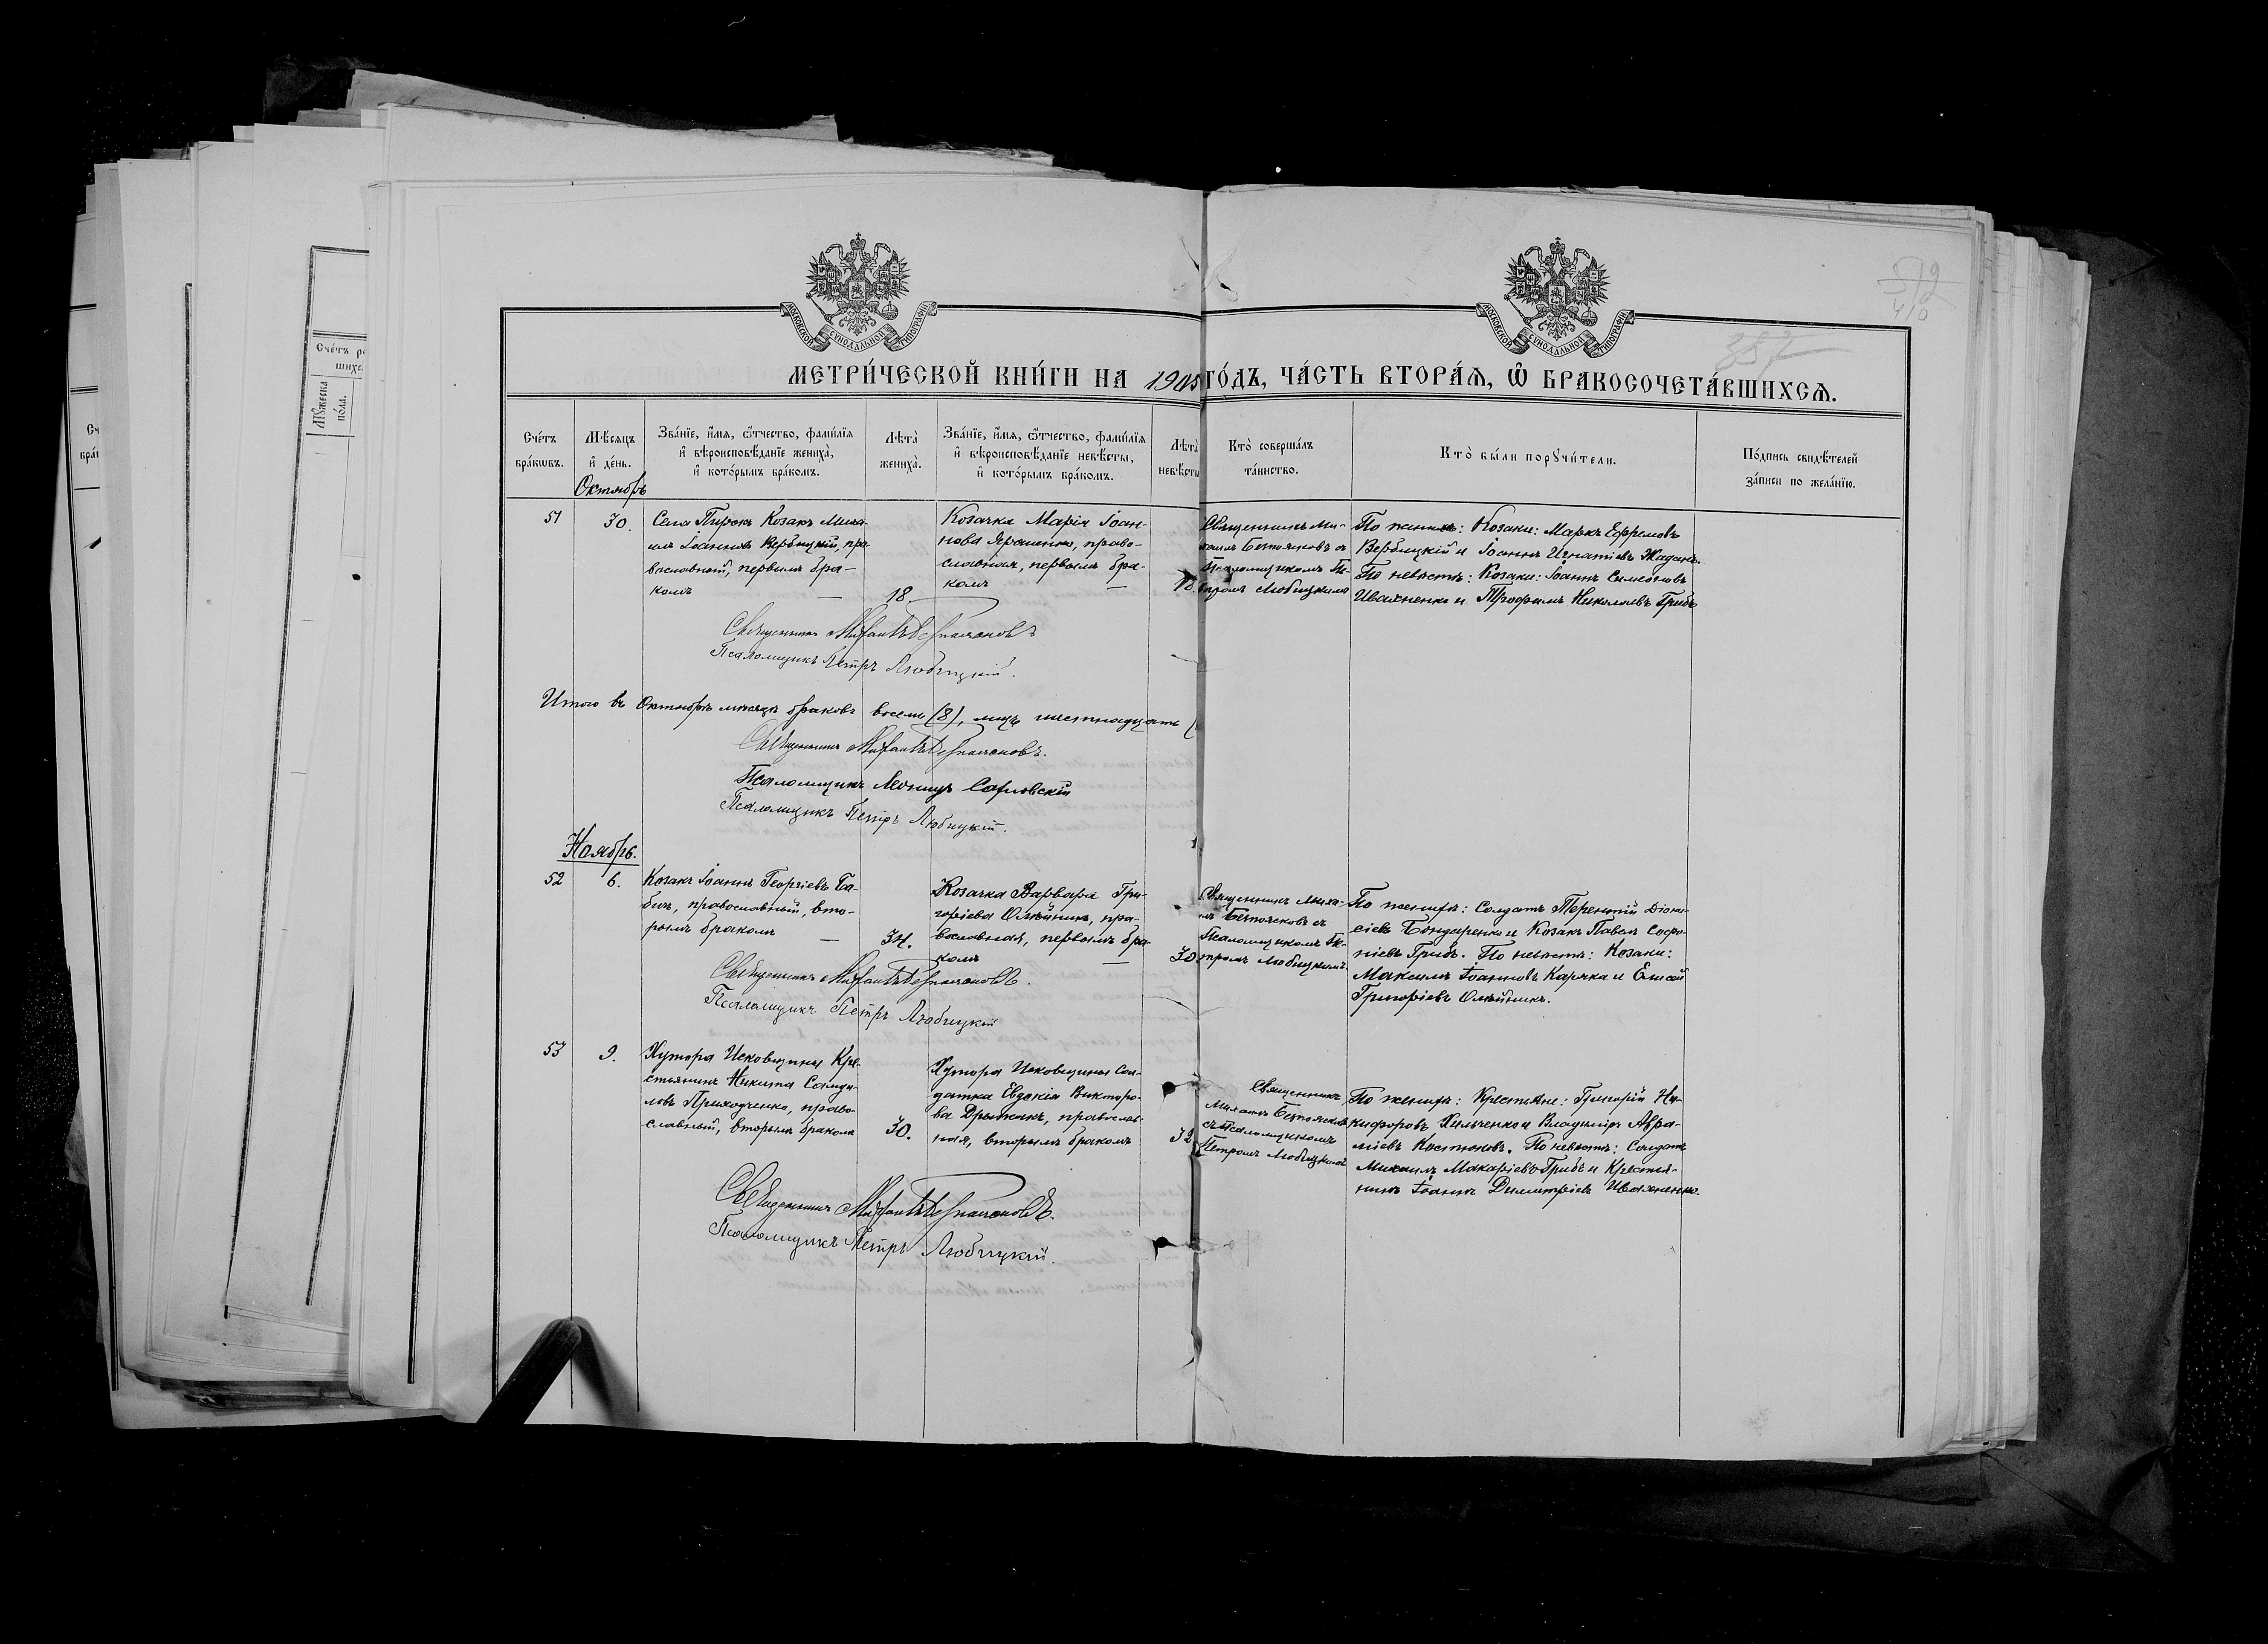 МОСКОВСКОЙ СУНОДАЛЬНОЙ ТИПОГРАФІИ
МОСКОВСКОЙ СУНОДАЛЬНОЙ ТИПОГРАФІИ
387
МЕТРИ́ЧЕСКОЙ КНИ́ГИ НА 1905 ГО́ДЪ, ЧА́СТЬ ВТОРА́Ѧ, Ѽ БРАКОСОЧЕТА́ВШИХСѦ.
Сче́тъ
бра́кѡвъ.
Мѣ́сѧцъ
и҆ де́нь.
Октябрь
Зва́нїе, и҆́мѧ, ѻ҆́тчество, фами́лїѧ
и҆ вѣ́роисповѣ́данїе жениха̀,
и҆ кото́рымъ бра́комъ.
Лѣта̀
жениха̀.
Зва́нїе, и҆́мѧ, ѻ҆́тчество, фами́лїѧ
и҆ вѣ́роисповѣ́данїе невѣ́сты,
и҆ кото́рымъ бра́комъ.
Лѣта̀
невѣ́сты
Кто̀ соверша́лъ
та́инство.
Кто̀ бы́ли порꙋчи́тели.
По́дпись свидѣ́телей
за́писи по жела́нїю.
51
30.
Села Пирокъ Козакъ Миха-
илъ Іоанновъ Вербицкій, пра-
вославный, первымъ бра-
комъ
18
Козачка Марія Іоан-
нова Ярошенко, право-
славная, первымъ бра-
комъ
18.
Священникъ Ми-
хаилъ Безпояковъ съ
Псаломщикомъ Пе-
тромъ Любицкимъ
По женихѣ: Козаки: Маркъ Ефремовъ
Вербицкій и Іоаннъ Игнатіевъ Жаданъ.
По невѣстѣ: Козаки: Іоаннъ Симеоновъ
Иваненко и Трофимъ Николаевъ Грибъ
Священникъ Михаилъ
Псаломщикъ Петръ Любицкій.
Итого въ Октябрѣ мѣсяцѣ браковъ восемь (8), лицъ шестнадцать (
Священникъ Михаилъ
Псаломщикъ Леонидъ
Псаломщикъ Петръ Любицкій.
Ноябрь.
52
6.
Козакъ Іоаннъ Георгіевъ Ба-
бичъ, православный, вто-
рымъ бракомъ
34.
Козачка Варвара Гри-
горіева Олѣйникъ, пра-
вославная, первымъ бра-
комъ
30.
Священникъ Миха-
илъ съ
Псаломщикомъ Пе-
тромъ Любицкимъ.
По женихѣ: Солдатъ Терентій Діони-
сіевъ Бондаренко и Козакъ Павелъ Софо-
ніевъ Грибъ. По невѣстѣ: Козаки:
Максимъ Іоанновъ Каряка и Елисей
Григоріевъ Олѣйникъ.
Священникъ Михаилъ
Псаломщикъ Петръ Любицкій
53
9.
Хутора Исковщины Кре-
стьянинъ Никита Самуи-
ловъ Приходченко, право-
славный, вторымъ бракомъ
30.
Хутора Исковщины Сол-
датка Евдокія Викторо-
ва, православ-
ная, вторымъ бракомъ
32
Священникъ
Михаилъ
съ Псаломщикомъ
Петромъ Любицкимъ
По женихѣ: Крестьяне: Григорій Ни-
кифоровъ Кильченко и Владиміръ Авра-
міевъ Костюковъ. По невѣстѣ: Солдатъ
Михаилъ Макаріевъ Грибъ и Крестья-
нинъ Іоаннъ Димитріевъ Иваненко.
Священникъ Михаилъ
Псаломщикъ Петръ Любицкій.